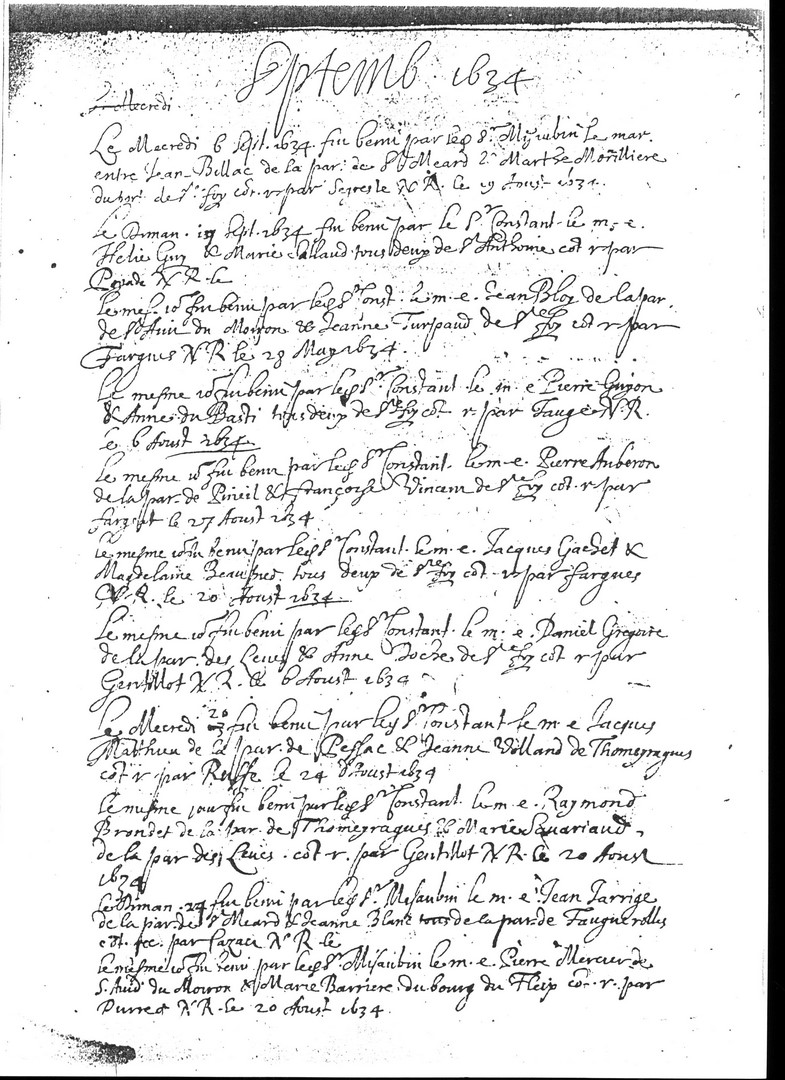 Septemb. 1634
Le Mecredi
Le Mecredi 6 Sept. 1634 fut beni par led Sr. Misaubin le mar.
entre Jean Billac de la par. de St Meard & Marthe Morilliere
de Ste foy cot. r. par N. R. le 19 Aoust 1634.
Le Diman. 17 Sept. 1634 fut beni par le Sr Constant le m. e.
Helie Guy & Marie Callaud tous deux de St Anthoine cot r par
N. R. le
Le mes. jo. fut beni par led Sr Const. le m. e. Jean Bloy de la par.
de St Avit du Moiron & Jeanne Turpaud de Ste foy cot r par
Fargues N R le 28 May 1634.
Le mesme jo. fut beni par led Sr Constant le m. e Pierre Guyon
& Anne du Basti tous deux de Ste foy cot r. par Fauge N. R.
le 6 Aoust 1634
Le mesme jo. fut beni par led Sr Constant. le m. e. Pierre Auberon
de la par. de Pineil & françoise Vincent de Ste foy cot. r. par
le 27 Aoust 1634
Le mesme jo. fut beni par led Sr Constant le m. e. Jacques Gachet &
Magdelaine tous deux de Ste foy cot. r. par fargues
N. R. le 20 Aoust 1634
Le mesme jo. fut beni par led Sr Constant. le m. e. Daniel Gregoire
de la par. des Leves & Anne de Ste foy cot r par
Gentillot N. R. le 6 Aoust 1634
Le Mecredi 20 fut beni par led Sr Constant le m e Jacques
Matthieu de la par. de Pessac & Jeanne Volland de Thomeyragues
cot r par Ruffe le 24 d'Aoust 1634
Le mesme jour fut beni par led Sr Constant le m. e. Raymond
Brondet de la par. de Thomeyragues & Marie Savariaud
de la par des Leves. cot. r. par Gentillot N. R. le 20 Aoust
1634
Le Diman. 24 fut beni par led Sr Misaubin le m. e Jean Jarrige
de la par. de St Meard & Jeanne Blanc tous de la par. de Fauguerolles
cot. rec. par N. R. le
Le mesme jo. fut beni par led Sr Misaubin le m. e. Pierre Mercier de
S. Avid du Moiron & Marie Barriere du bourg du Fleix cot. r. par
N. R. le 20 Aoust 1634.